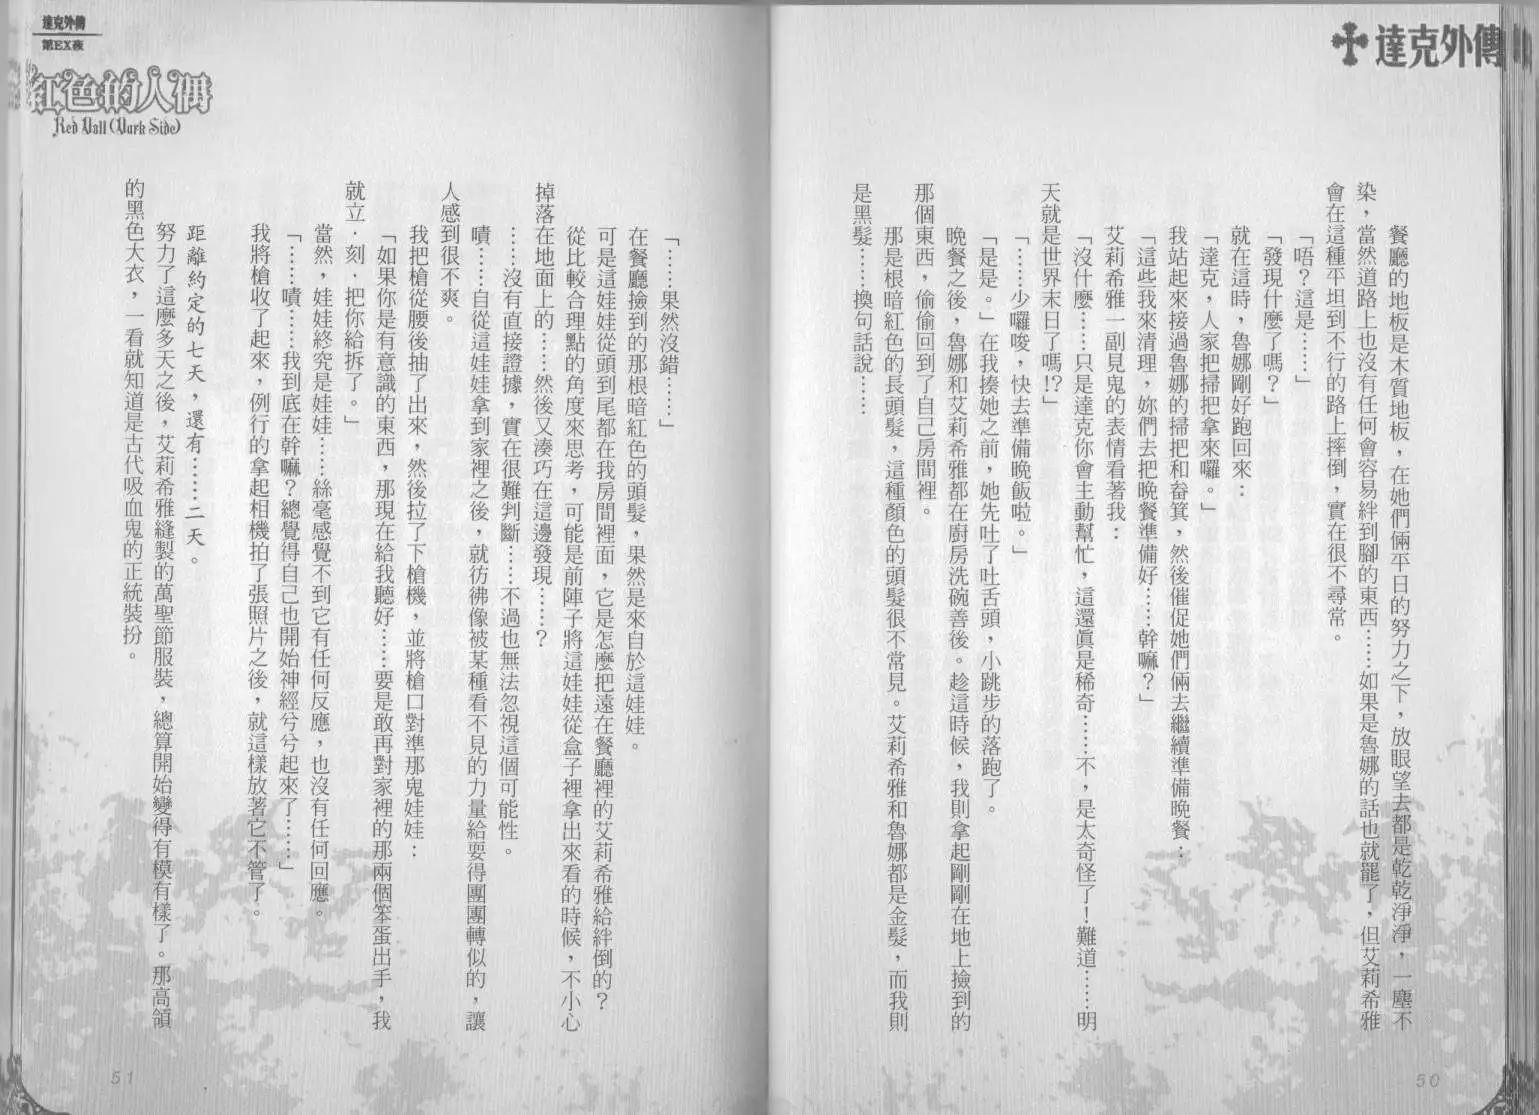 達克外傳
餐廳的地板是木質地板,在她們倆平日的努力之下,放眼望去都是乾乾淨淨,一塵不
染,當然道路上也沒有任何會容易絆到腳的東西……如果是魯娜的話也就罷了,但艾莉希雅
會在這種平坦到不行的路上摔倒,實在很不尋常。
「唔?這是……」
「發現什麼了嗎?」
就在這時,魯娜剛好跑回來:
「達克,人家把掃把拿來囉。」
我站起來接過魯娜的掃把和畚箕,然後催促她們倆去繼續準備晚餐:
「這些我來清理,妳們去把晚餐準備好……幹嘛?」
艾莉希雅一副見鬼的表情看著我:
「沒什麼……只是達克你會主動幫忙,這還真是稀奇……不,是太奇怪了!難道……明
天就是世界末日了嗎!?」
「……少囉唆,快去準備晚飯啦。」
「是是。」在我揍她之前,她先吐了吐舌頭,小跳步的落跑了。
晚餐之後,魯娜和艾莉希雅都在廚房洗碗善後。趁這時候,我則拿起剛剛在地上撿到的
那個東西,偷偷回到了自己房間裡。
那是根暗紅色的長頭髮,這種顏色的頭髮很不常見。艾莉希雅和魯娜都是金髮,而我則
是黑髮……換句話說……
50
達克外傳
第EX夜
紅色的人偶
Red Doll (Dark Side)
「……果然沒錯……」
在餐廳撿到的那根暗紅色的頭髮,果然是來自於這娃娃。
可是這娃娃從頭到尾都在我房間裡面,它是怎麼把遠在餐廳裡的艾莉希雅給絆倒的?
從比較合理點的角度來思考,可能是前陣子將這娃娃從盒子裡拿出來看的時候,不小心
掉落在地面上的……然後又湊巧在這邊發現……?
……沒有直接證據,實在很難判斷……不過也無法忽視這個可能性。
嘖……自從這娃娃拿到家裡之後,就彷彿像被某種看不見的力量給耍得團團轉似的,讓
人感到很不爽。
我把槍從腰後抽了出來,然後拉了下槍機,並將槍口對準那鬼娃娃:
「如果你是有意識的東西,那現在給我聽好……要是敢再對家裡的那兩個笨蛋出手,我
就立.刻.把你給拆了。」
當然,娃娃終究是娃娃……絲毫感覺不到它有任何反應,也沒有任何回應。
「……嘖……我到底在幹嘛?總覺得自己也開始神經兮兮起來了……」
我將槍收了起來,例行的拿起相機拍了張照片之後,就這樣放著它不管了。
距離約定的七天,還有……二天。
努力了這麼多天之後,艾莉希雅縫製的萬聖節服裝,總算開始變得有模有樣了。那高領
的黑色大衣,一看就知道是古代吸血鬼的正統裝扮。
51